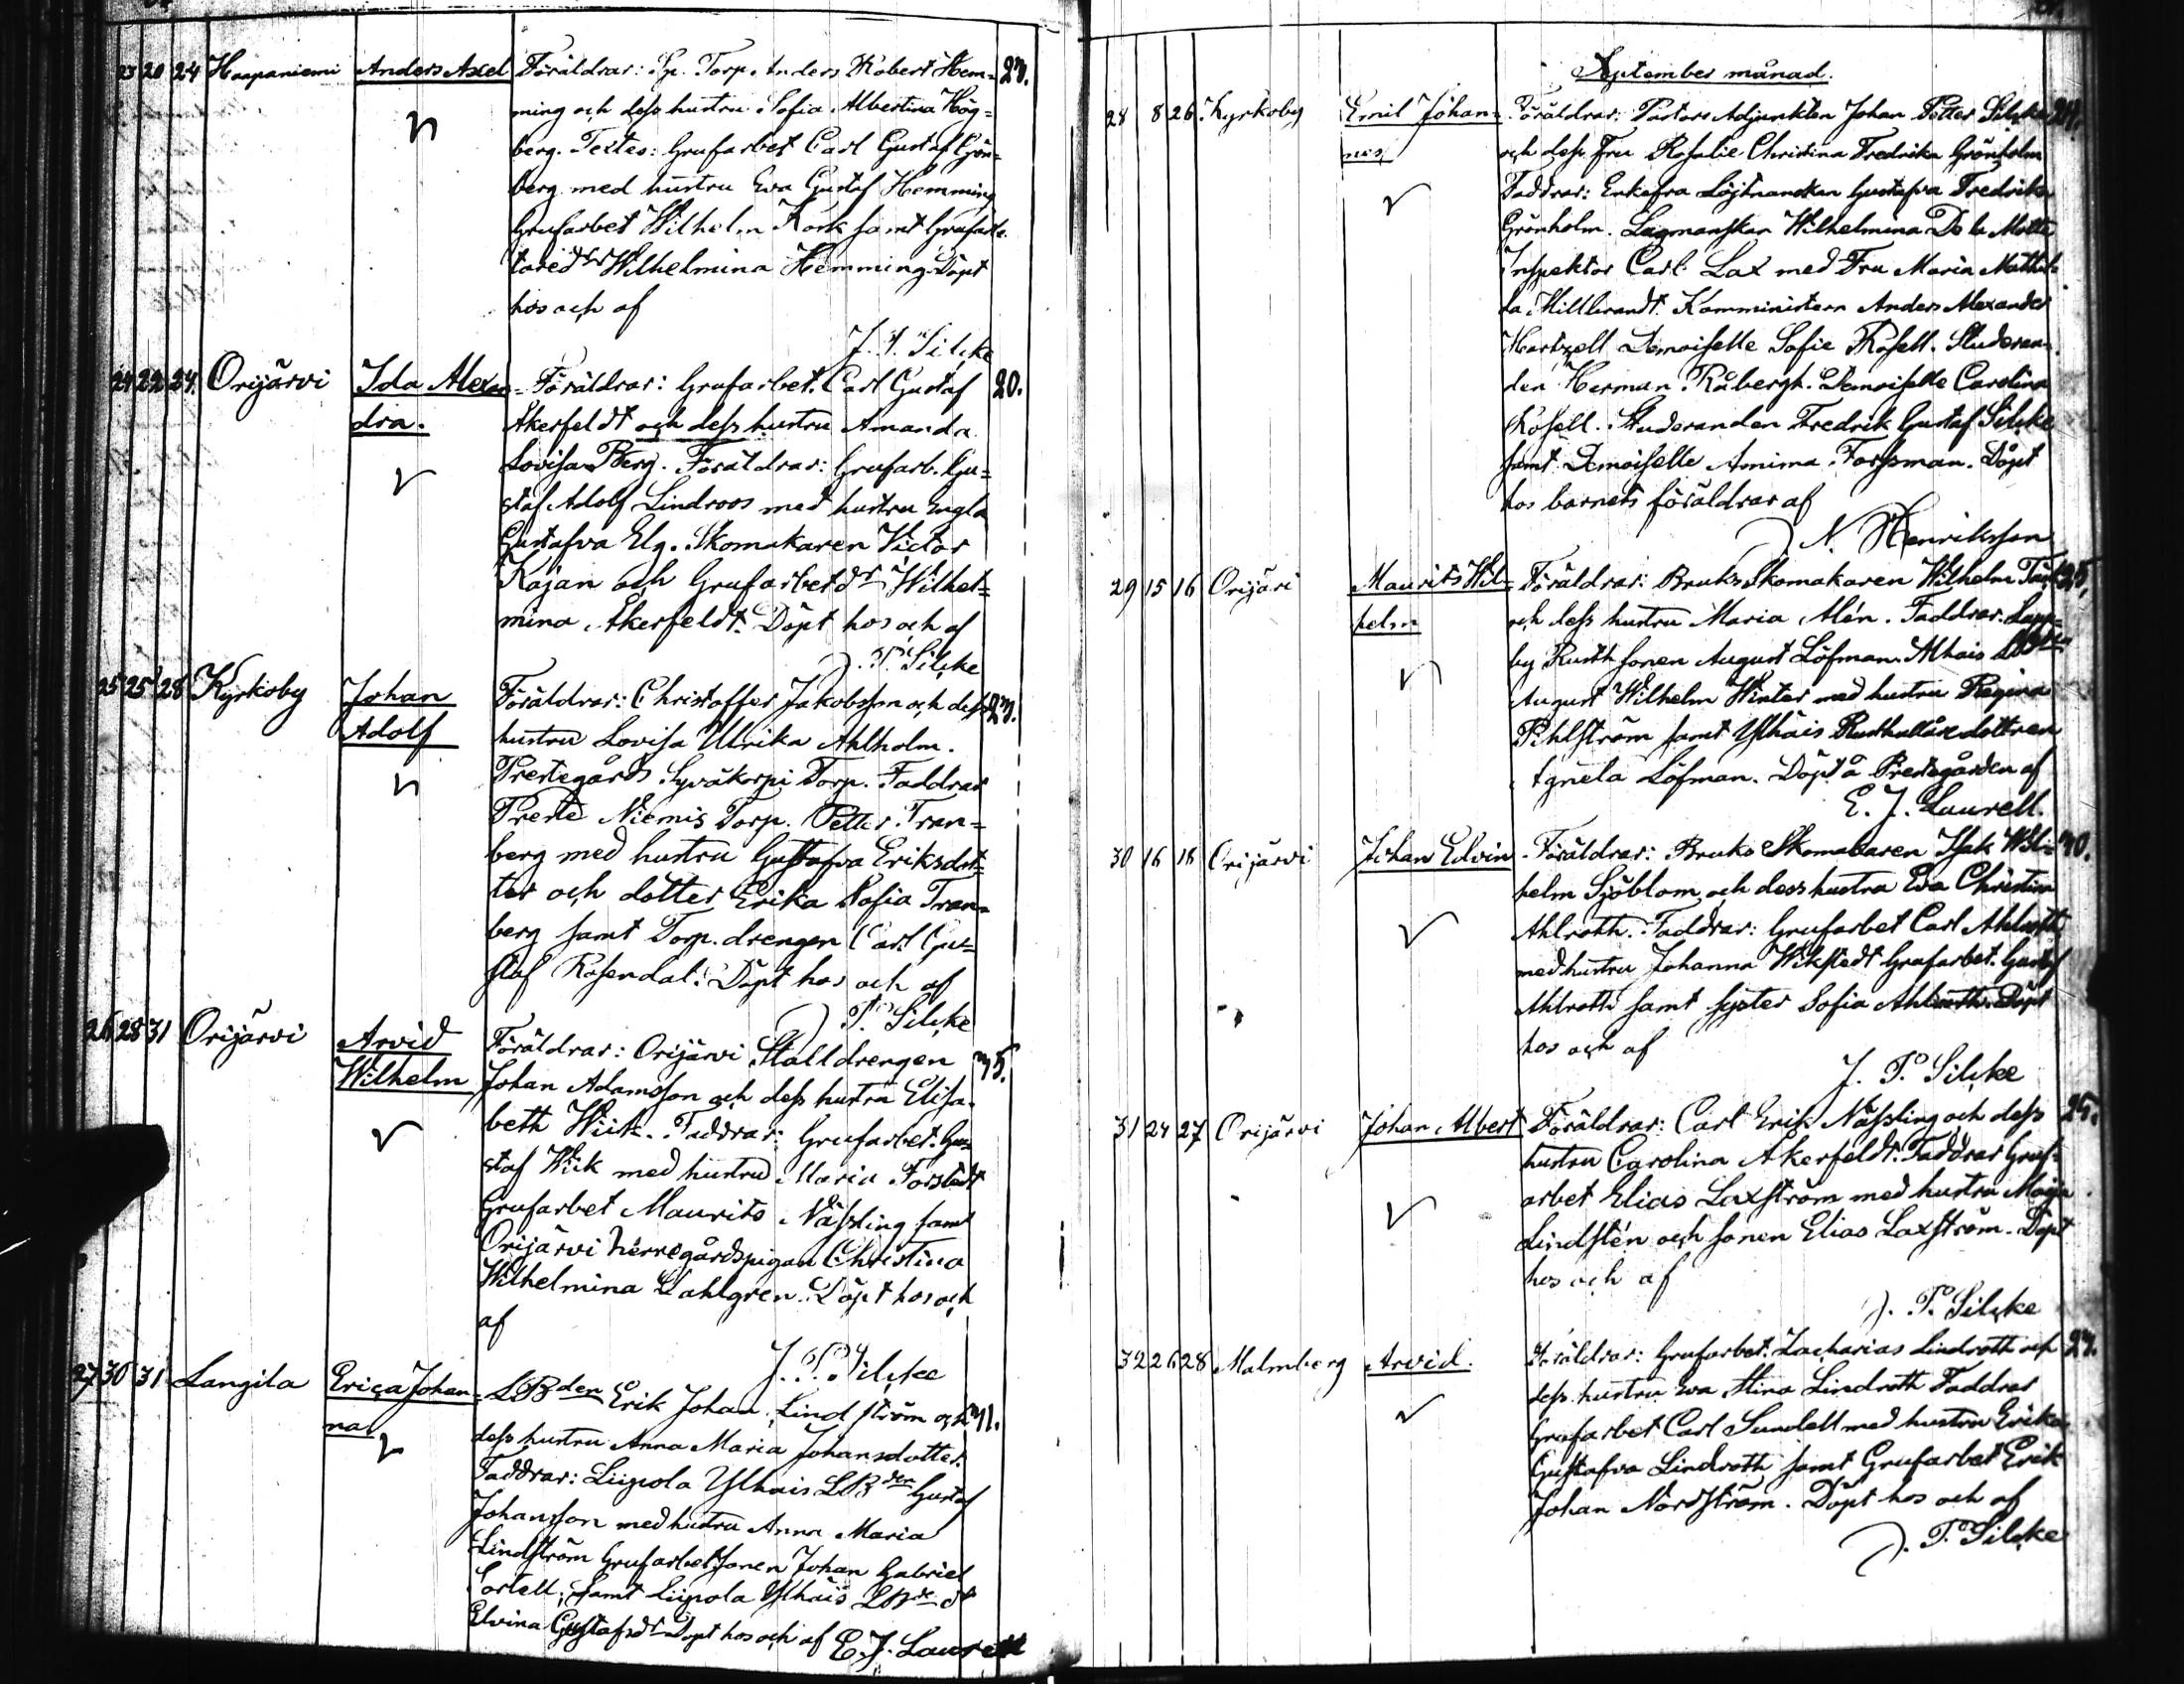 23 20 24 Haapaniemi Anders Axel Föräldrar: Sp. Torp. Anders Robert Hem= 27.
ming och dess hustru Sofia Albertina Hög=
berg. Testes: Grufarbet Carl Gustaf Grön=
berg med hustru Eva Gustaf Hemming
Grufarbet Wilhelm Kock samt Grufarb.
Wilhelmina Hemming. Döpt
hos och af
J. P. Silcke
24 22 24. Orijärvi Ida Alexan= Föräldrar: Grufarbet. Carl Gustaf 20.
dra. Åkerfeldt och dess hustru Amanda
Lovisa Berg. Föräldrar: Grufarb. Gu=
staf Adolf Lindroos med hustru Engla
Gustafva Elg. Skomakaren Victor
Kajan och Grufarbet dr Wilhel=
mina Åkerfeldt. Döpt hos och af
J. P. Silcke
25 25 28 Kyrkoby Johan Föräldrar: Christoffer Jakobsson och dess 27.
Adolf hustru Lovisa Ulrika Ahlholm.
Prestegårds Syväkorpi Torp. Faddrar
Preste Niemis Torp. Petter Tran=
berg med hustru Gustafva Eriksdot=
ter och dotter Erika Sofia Tran=
berg samt Torp. drengen Carl Gus=
staf Rosendal. Döpt hos och af
J. P. Silcke
26 28 31 Orijärvi Arvid Föräldrar: Orijärvi Stalldrengen 35.
Wilhelm Johan Adamsson och dess hustru Elisa=
beth Wiik. Faddrar: Grufarbet. Gu=
staf Wiik med hustru Maria Forstedt
Grufarbet Maurits Nässling samt
Orijärvi herregårdspigan Christina
Wilhelmina Dahlgren. Döpt hos och
af
J. P. Silcke
27 30 31 Langila Erica Johan= LBden Erik Johan Lindström och 31.
na dess hustru Anna Maria Johansdotter.
Faddrar: Liipola Ylhais LBden Gustaf
Johansson med hustru Anna Maria
Lindström Grufarbet sonen Johan Gabriel
Sortell, samt Liipola Ylhäis LBde dr
Elvina Gustafsdr Döpt hos och af E. J. Laurell
September månad.
28 8 26 Kyrkoby Emil Johan= Föräldrar: Pastors Adjunkten Johan Petter Silcke 24.
nes och dess Fru Rosalie Christina Fredrika Grönholm
Faddrar: Enkefru Löjtnantskan Gustafva Fredrika
Grönholm. Lagmanskan Wilhelmina De la Motte
Inspektor Carl Lax med Fru Maria Mathil=
da Hillbrandt. Kamministern Anders Alexander
Hartzell Demoiselle Sofie Rosell. Studeran=
den Herman Råbergh. Demoiselle Carolina
Rosell. Studeranden Fredrik Gustaf Silcke
samt Demoiselle Amima Forssman. Döpt
hos barnets föräldrar af
N. Henriksson
29 15 16 Orijäri Maurits Wil= Föräldrar: Bruks Skomakaren Wilhelm
helm och dess hustru Maria Alén. Faddrar. Lapp=
by Rusth sonen August Löfman. Alhais
August Wilhelm Winter med hustru Regina
Pihlström samt Ylhäis Rusthållare dottren
Agnela Löfman. Döpt å Prestegården af
E. J. Laurell.
30 16 18 Orijärvi Johan Edvin Föräldrar: Bruks Skomakaren Isak Wil= 30.
helm Sjöblom och dess hustru Eva Christina
Ahlroth. Faddrar: Grufarbet Carl Ahlroth
med hustru Johanna Wikstedt Grufarbet. Gustaf
Ahlroth samt syster Sofia Ahlroth. Döpt
hos och af
J. P. Silcke
31 24 27 Orijärvi Johan Albert Föräldrar: Carl Erik Nässling och dess 25.
hustru Carolina Åkerfeldt. Faddrar Gruf=
arbet Elias Laxström med hustru Maija
Lindstén och sonen Elias Laxström. Döpt
hos och af
J. P. Silcke
32 26 28 Malmberg Arvid. Föräldrar: Grufarbet. Zacharias Lindroth och 27.
dess hustru Eva Stina Lindroth Faddrar
Grufarbet Carl Sundell med hustru Erika
Gustafva Lindroth samt Grufarbet Erik
Johan Nordström. Döpt hos och af
J. P. Silcke